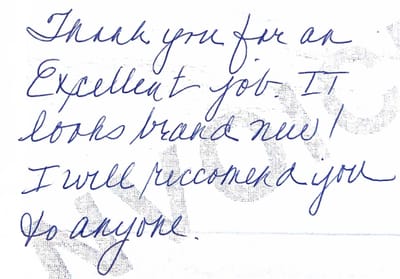 Thank you for an
Excellent job. IT
looks brand new!
I will reccomend you
to anyone.
INVOICE